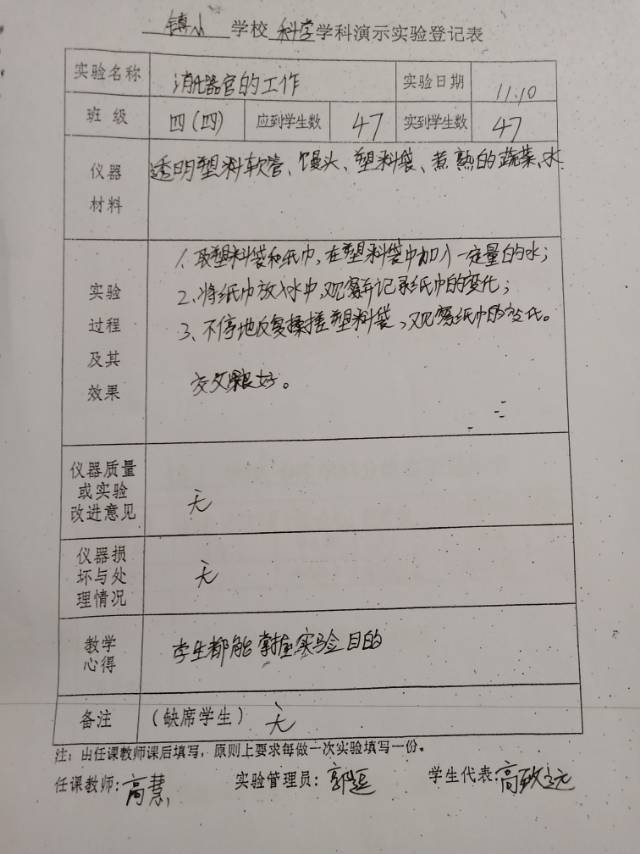 镇小 学校 科学 学科演示实验登记表
实验名称 消化器官的工作 实验日期 11.10
班 级 四(四) 应到学生数 47 实到学生数 47
仪器材料 透明塑料软管、馒头、塑料袋、煮熟的蔬菜、水
实验过程及其效果
1、取塑料袋和纸巾,在塑料袋中加入一定量的水;
2、将纸巾放入水中,观察并记录纸巾的变化;
3、不停地反复揉搓塑料袋,观察纸巾的变化。
效果良好。
仪器质量或实验改进意见 无
仪器损坏与处理情况 无
教学心得 学生都能掌握实验目的
备注 (缺席学生) 无
注:由任课教师课后填写,原则上要求每做一次实验填写一份。
任课教师:高慧 实验管理员:郭延 学生代表:高致